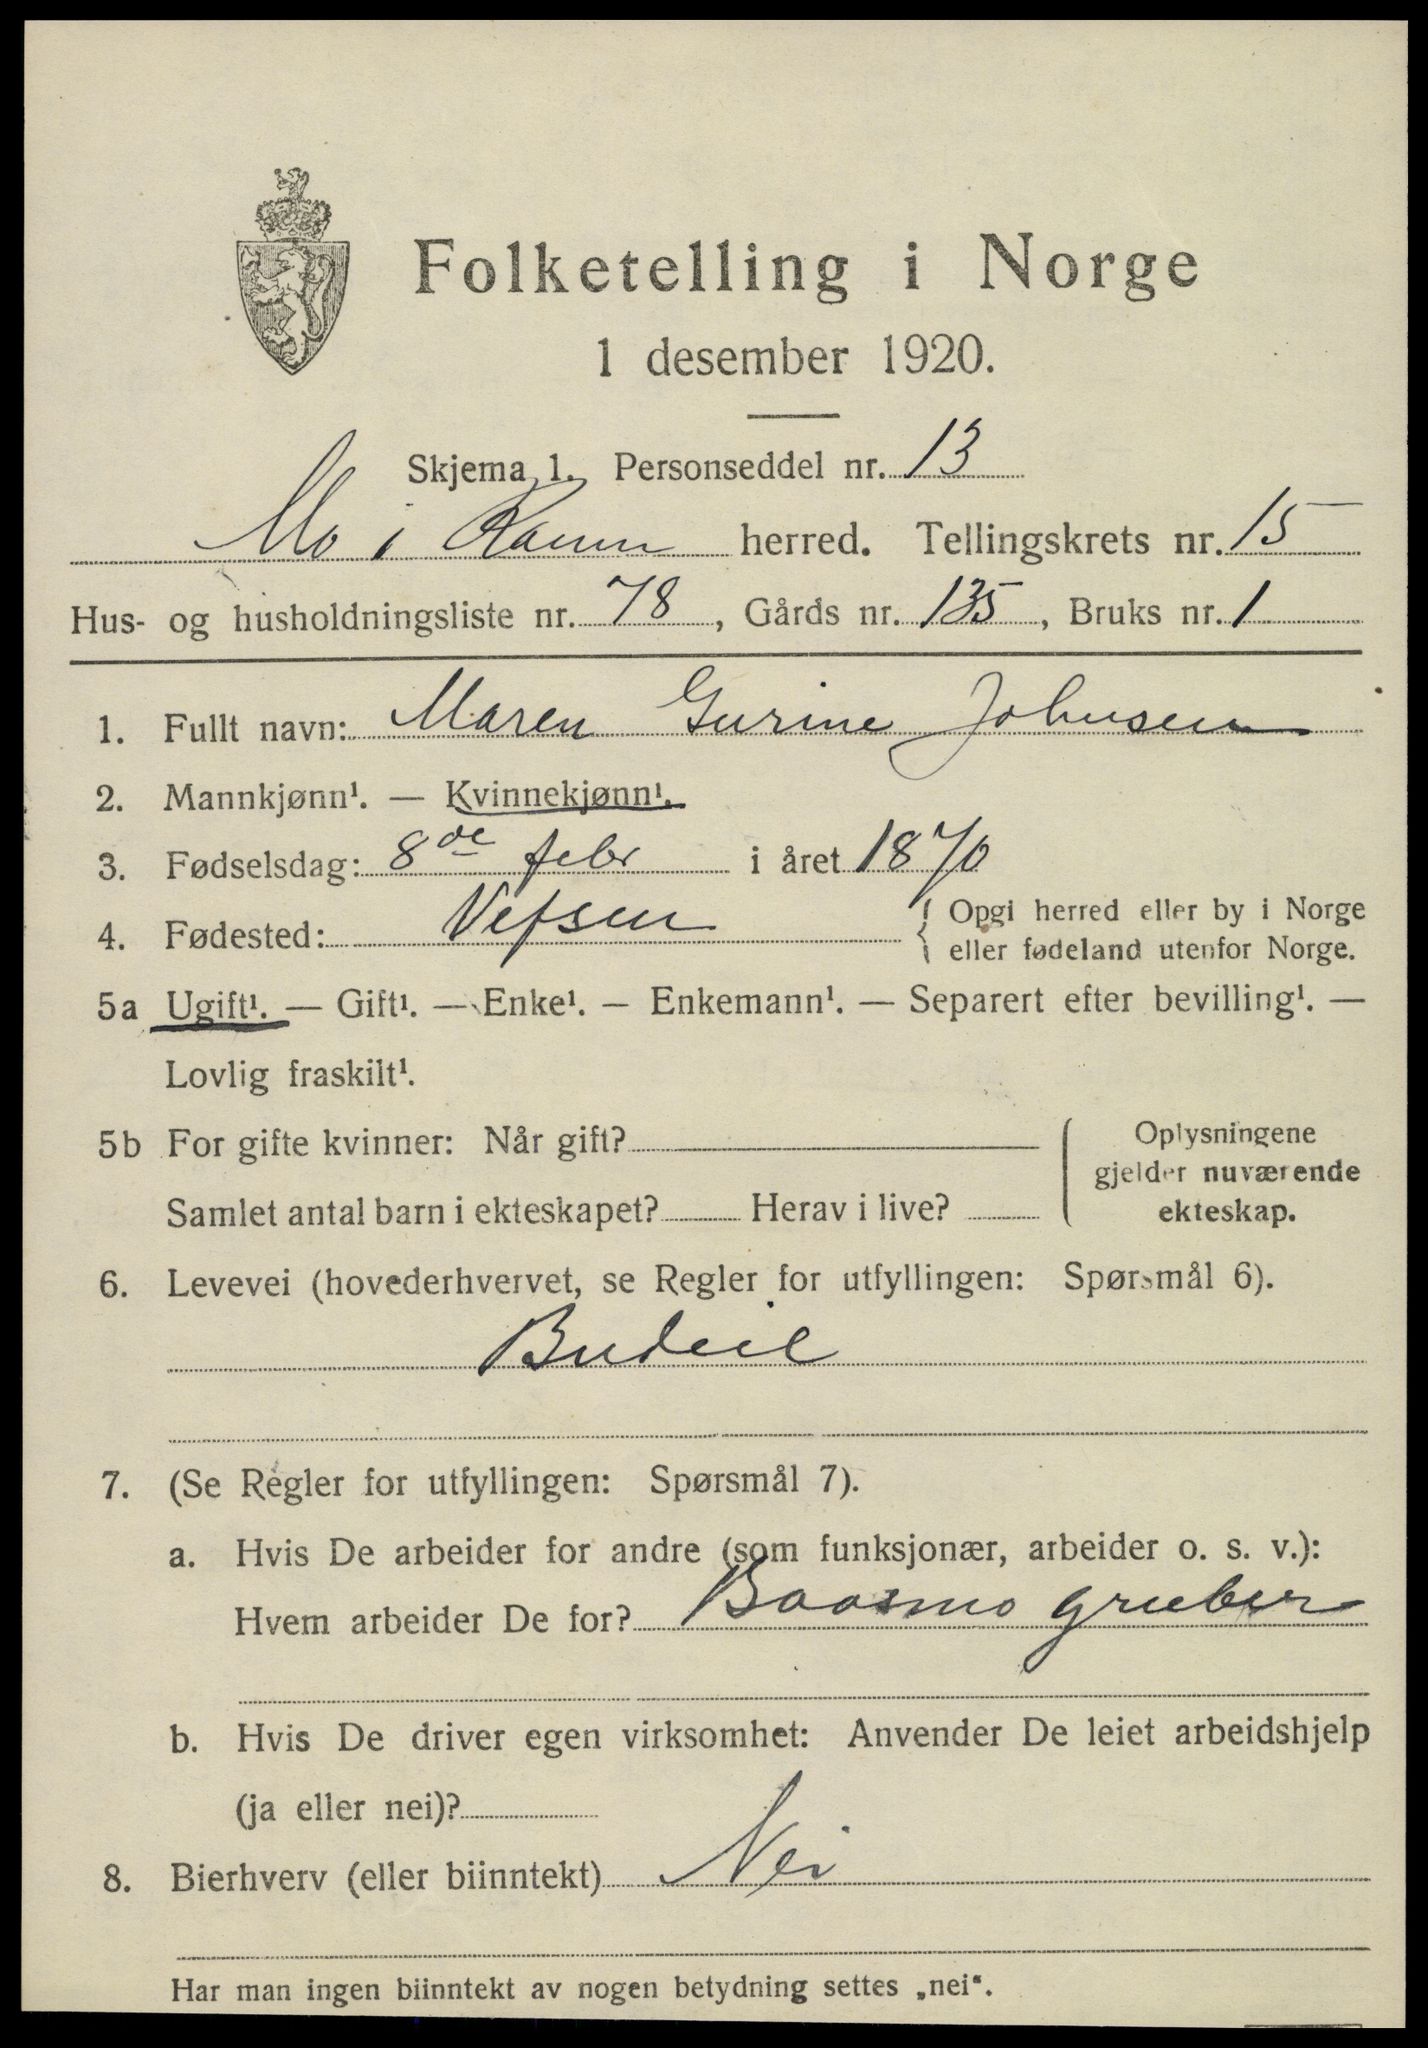 Folketelling i Norge
1 desember 1920.
Skjema 1. Personseddel nr. 13
Mo i Ranen herred. Tellingskrets nr. 15
Hus- og husholdningsliste nr. 78, Gårds nr. 135, Bruks nr. 1
1. Fullt navn: Maren Gurine Johnsen
2. Mannkjønn¹. — Kvinnekjønn¹.
3. Fødselsdag: 8de febr i året 1870
4. Fødested: Vefsen { Opgi herred eller by i Norge
eller fødeland utenfor Norge.
5a Ugift¹. — Gift¹. — Enke¹. — Enkemann¹. — Separert efter bevilling¹. —
Lovlig fraskilt¹.
5b For gifte kvinner: Når gift?
Samlet antal barn i ekteskapet? Herav i live?
Oplysningene
gjelder nuværende
ekteskap.
6. Levevei (hovederhvervet, se Regler for utfyllingen: Spørsmål 6).
Budeie
7. (Se Regler for utfyllingen: Spørsmål 7).
a. Hvis De arbeider for andre (som funksjonær, arbeider o. s. v.):
Hvem arbeider De for? Baasmo gruber
b. Hvis De driver egen virksomhet: Anvender De leiet arbeidshjelp
(ja eller nei)?
8. Bierhverv (eller biinntekt) Nei
Har man ingen biinntekt av nogen betydning settes „nei“.